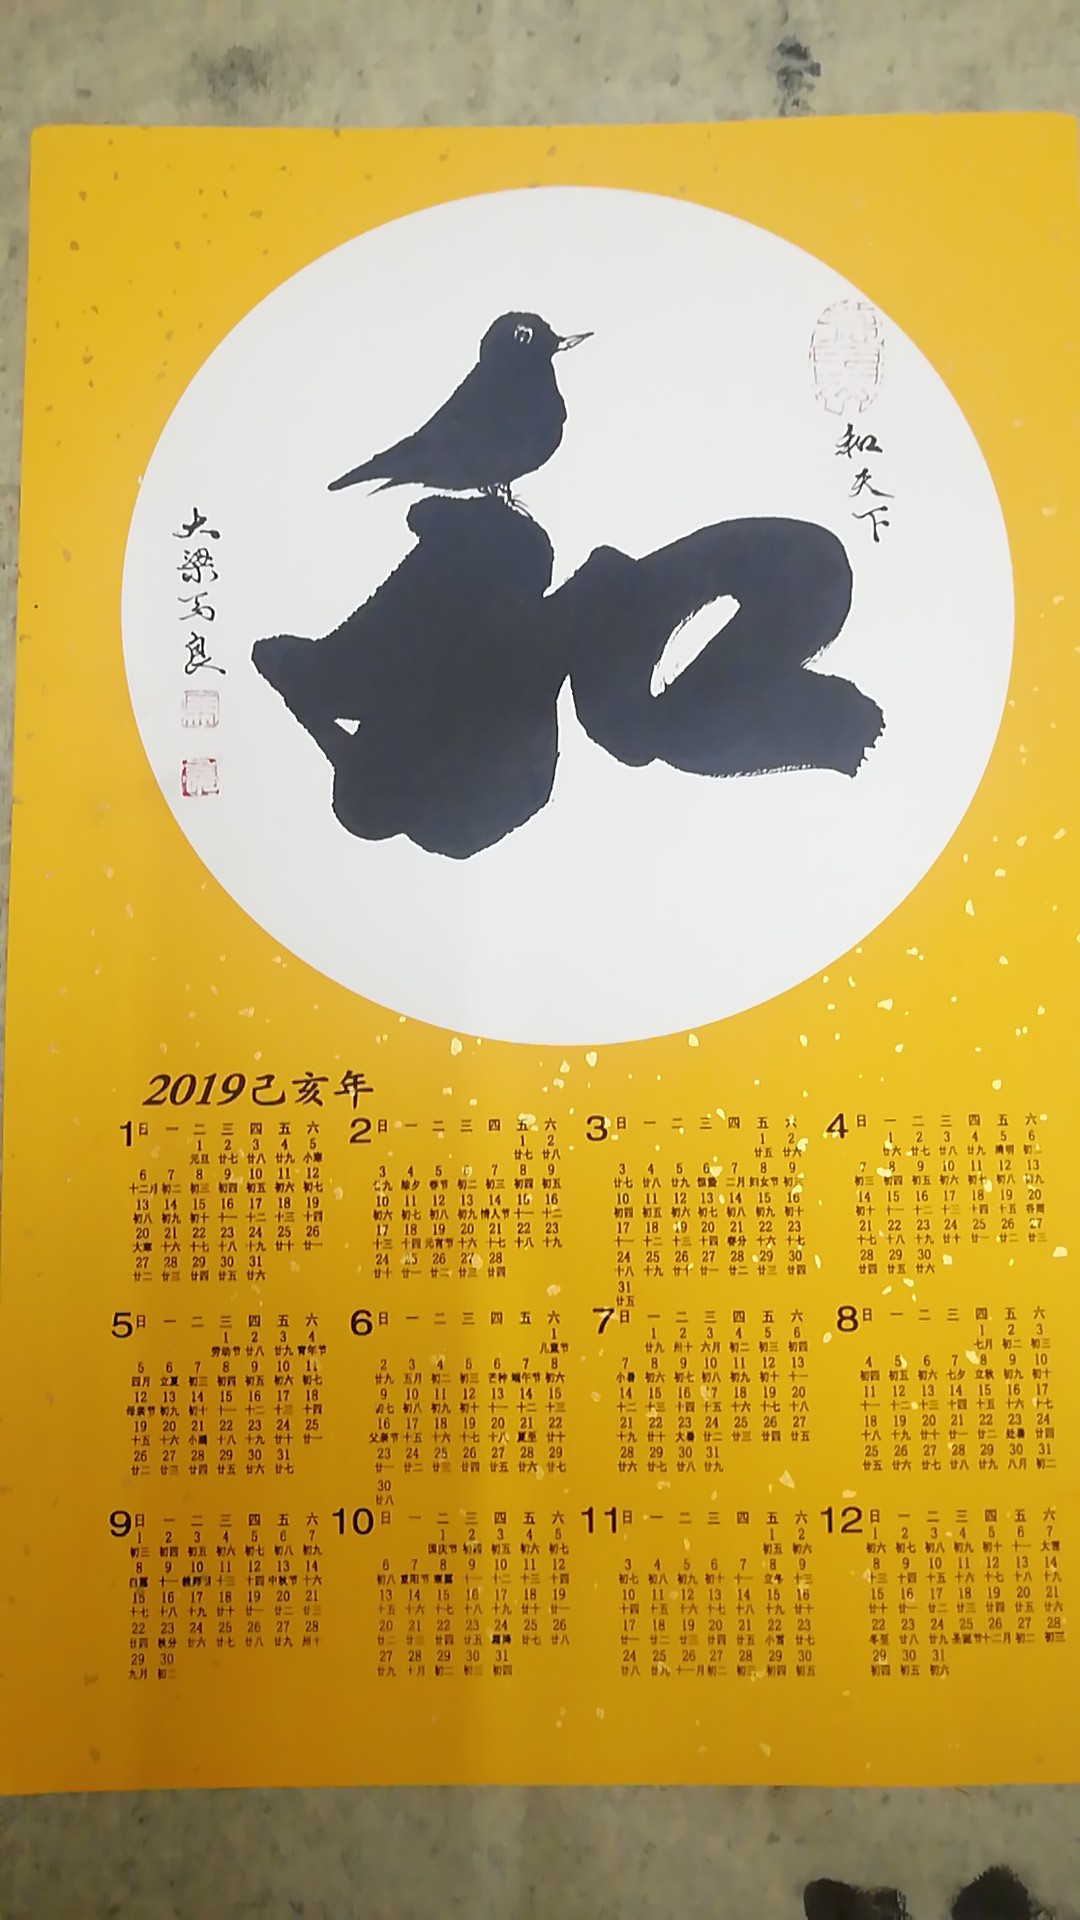 和天下
和
大梁马良
2019己亥年
1
日 一 二 三 四 五 六
1 2 3 4 5
元旦 廿七 廿八 廿九 小寒
6 7 8 9 10 11 12
十二月 初二 初三 初四 初五 初六 初七
13 14 15 16 17 18 19
初八 初九 初十 十一 十二 十三 十四
20 21 22 23 24 25 26
大寒 十六 十七 十八 十九 廿十 廿一
27 28 29 30 31
廿二 廿三 廿四 廿五 廿六
2
日 一 二 三 四 五 六
1 2
廿七 廿八
3 4 5 6 7 8 9
廿九 除夕 春节 初二 初三 初四 初五
10 11 12 13 14 15 16
初六 初七 初八 初九 情人节 十一 十二
17 18 19 20 21 22 23
十三 十四 元宵节 十六 十七 十八 十九
24 25 26 27 28
廿十 廿一 廿二 廿三 廿四
3
日 一 二 三 四 五 六
1 2
廿五 廿六
3 4 5 6 7 8 9
廿七 廿八 廿九 惊蛰 二月 妇女节 初三
10 11 12 13 14 15 16
初四 初五 初六 初七 初八 初九 初十
17 18 19 20 21 22 23
十一 十二 十三 十四 春分 十六 十七
24 25 26 27 28 29 30
十八 十九 廿十 廿一 廿二 廿三 廿四
31
廿五
4
日 一 二 三 四 五 六
1 2 3 4 5 6
廿六 廿七 廿八 廿九 清明 初二
7 8 9 10 11 12 13
初三 初四 初五 初六 初七 初八 初九
14 15 16 17 18 19 20
初十 十一 十二 十三 十四 十五 谷雨
21 22 23 24 25 26 27
十七 十八 十九 廿十 廿一 廿二 廿三
28 29 30
廿四 廿五 廿六
5
日 一 二 三 四 五 六
1 2 3 4
劳动节 廿八 廿九 青年节
5 6 7 8 9 10 11
四月 立夏 初三 初四 初五 初六 初七
12 13 14 15 16 17 18
母亲节 初九 初十 十一 十二 十三 十四
19 20 21 22 23 24 25
十五 十六 小满 十八 十九 廿十 廿一
26 27 28 29 30 31
廿二 廿三 廿四 廿五 廿六 廿七
6
日 一 二 三 四 五 六
1
儿童节
2 3 4 5 6 7 8
廿九 五月 初二 初三 芒种 端午节 初六
9 10 11 12 13 14 15
初七 初八 初九 初十 十一 十二 十三
16 17 18 19 20 21 22
父亲节 十五 十六 十七 十八 夏至 廿十
23 24 25 26 27 28 29
廿一 廿二 廿三 廿四 廿五 廿六 廿七
30
廿八
7
日 一 二 三 四 五 六
1 2 3 4 5 6
廿九 卅十 六月 初二 初三 初四
7 8 9 10 11 12 13
小暑 初六 初七 初八 初九 初十 十一
14 15 16 17 18 19 20
十二 十三 十四 十五 十六 十七 十八
21 22 23 24 25 26 27
十九 廿十 大暑 廿二 廿三 廿四 廿五
28 29 30 31
廿六 廿七 廿八 廿九
8
日 一 二 三 四 五 六
1 2 3
七月 初二 初三
4 5 6 7 8 9 10
初四 初五 初六 七夕 立秋 初九 初十
11 12 13 14 15 16 17
十一 十二 十三 十四 十五 十六 十七
18 19 20 21 22 23 24
十八 十九 廿十 廿一 廿二 处暑 廿四
25 26 27 28 29 30 31
廿五 廿六 廿七 廿八 廿九 八月 初二
9
日 一 二 三 四 五 六
1 2 3 4 5 6 7
初三 初四 初五 初六 初七 初八 初九
8 9 10 11 12 13 14
白露 十一 教师节 十三 十四 中秋节 十六
15 16 17 18 19 20 21
十七 十八 十九 廿十 廿一 廿二 廿三
22 23 24 25 26 27 28
廿四 秋分 廿六 廿七 廿八 廿九 卅十
29 30
九月 初二
10
日 一 二 三 四 五 六
1 2 3 4 5
国庆节 初四 初五 初六 初七
6 7 8 9 10 11 12
初八 重阳节 寒露 十一 十二 十三 十四
13 14 15 16 17 18 19
十五 十六 十七 十八 十九 廿十 廿一
20 21 22 23 24 25 26
廿二 廿三 廿四 廿五 霜降 廿七 廿八
27 28 29 30 31
廿九 十月 初二 初三 初四
11
日 一 二 三 四 五 六
1 2
初五 初六
3 4 5 6 7 8 9
初七 初八 初九 初十 十一 立冬 十三
10 11 12 13 14 15 16
十四 十五 十六 十七 十八 十九 廿十
17 18 19 20 21 22 23
廿一 廿二 廿三 廿四 廿五 小雪 廿七
24 25 26 27 28 29 30
廿八 廿九 十一月 初二 初三 初四 初五
12
日 一 二 三 四 五 六
1 2 3 4 5 6 7
初六 初七 初八 初九 初十 十一 大雪
8 9 10 11 12 13 14
十三 十四 十五 十六 十七 十八 十九
15 16 17 18 19 20 21
廿十 廿一 廿二 廿三 廿四 廿五 廿六
22 23 24 25 26 27 28
冬至 廿八 廿九 圣诞节 十二月 初二 初三
29 30 31
初四 初五 初六